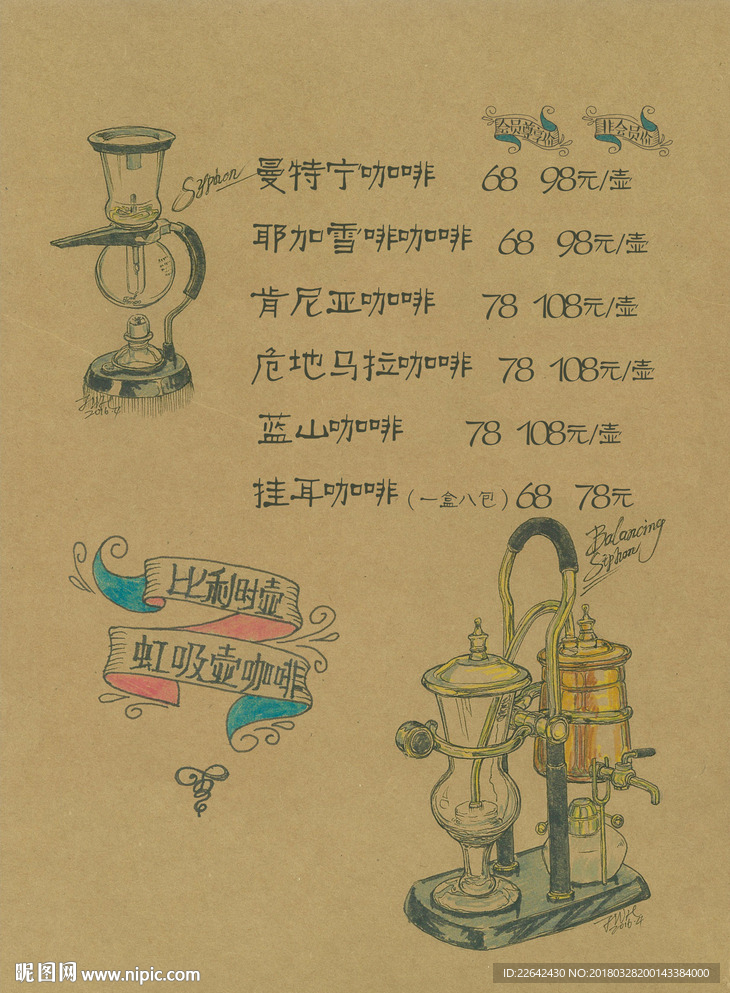 会员尊享价 非会员价
Syphon
曼特宁咖啡 68 98元/壶
耶加雪啡咖啡 68 98元/壶
肯尼亚咖啡 78 108元/壶
危地马拉咖啡 78 108元/壶
蓝山咖啡 78 108元/壶
挂耳咖啡(一盒八包) 68 78元
2016.4
Balancing
Siphon
比利时壶
虹吸壶咖啡
2016.4
昵图网 www.nipic.com
ID:22642430 NO:20180328200143384000